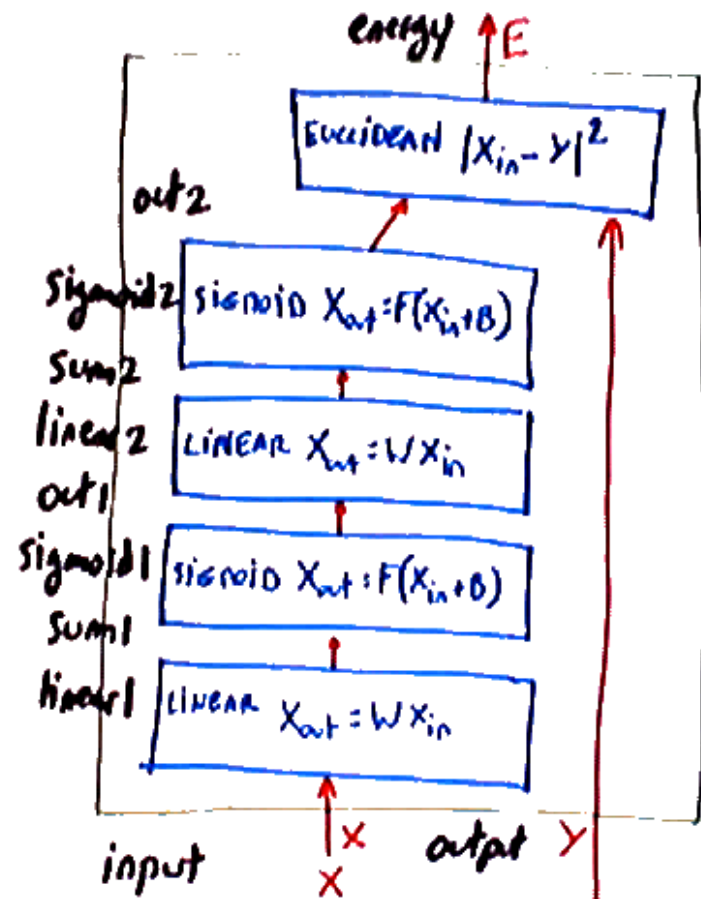 energy E
EUCLIDEAN |Xin - Y|²
out2
sigmoid2 SIGMOID Xout = F(Xin + B)
sum2
linear2 LINEAR Xout = WXin
out1
sigmoid1 SIGMOID Xout = F(Xin + B)
sum1
linear1 LINEAR Xout = WXin
input X output Y
X